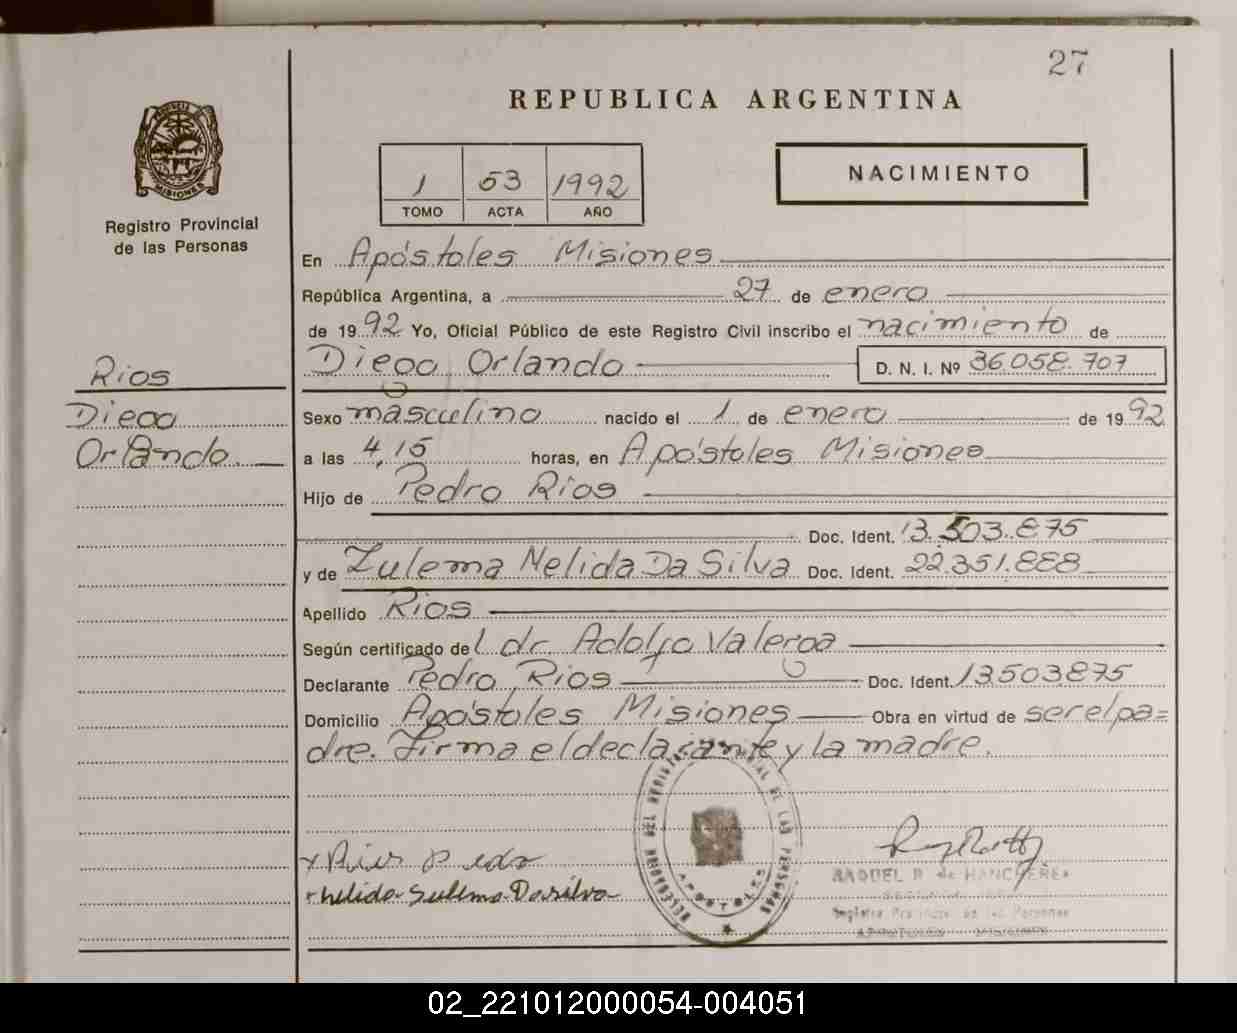 27
REPUBLICA ARGENTINA
PROVINCIA
MISIONES
Registro Provincial
de las Personas
1 53 1992
TOMO ACTA AÑO
NACIMIENTO
En Apóstoles Misiones
República Argentina, a 27 de enero
de 1992 Yo, Oficial Público de este Registro Civil inscribo el nacimiento de
Diego Orlando D. N. I. Nº 36.058.707
Rios
Diego
Orlando
Sexo masculino nacido el 1 de enero de 1992
a las 4,15 horas, en Apóstoles Misiones
Hijo de Pedro Rios
Doc. Ident. 13.503.875
y de Zulema Nelida Da Silva Doc. Ident. 22.351.888
Apellido Rios
Según certificado del dr. Adolfo Valeroa
Declarante Pedro Rios Doc. Ident. 13503875
Domicilio Apóstoles Misiones Obra en virtud de ser el pa=
dre. Firma el declarante y la madre.
x Rios Pedro
x nelida Sulema Dasilva
DELEGACION DEL REGISTRO PROVINCIAL DE LAS PERSONAS
APOSTOLES
RAQUEL R. de HANCHERE
Registro Provincial de las Personas
APOSTOLES MISIONES
02_221012000054-004051